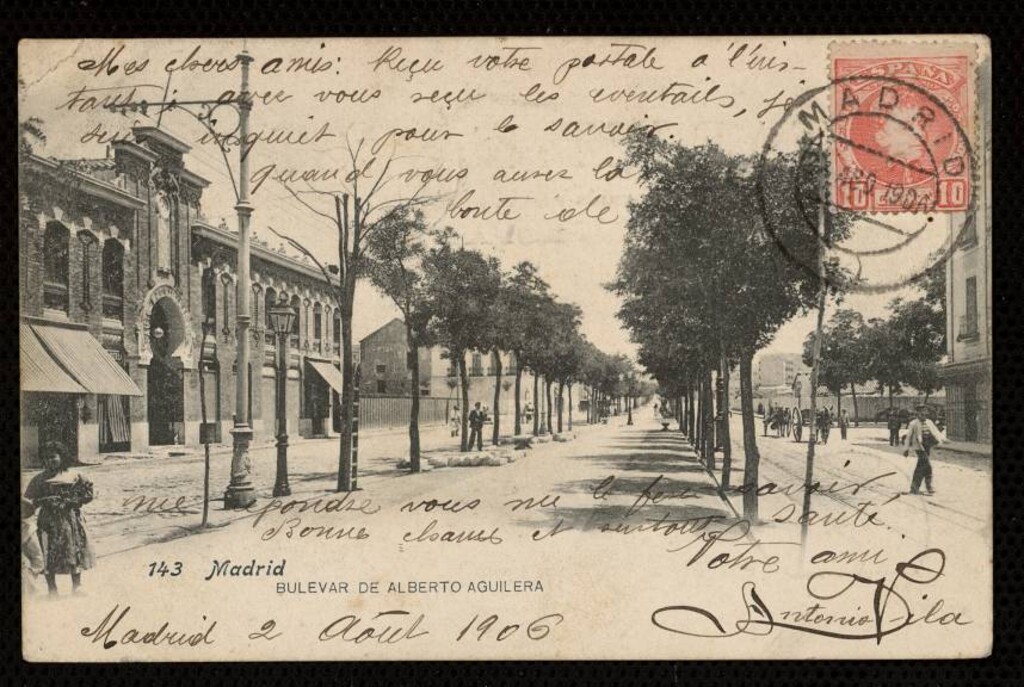 Mes chers amis: Reçu votre postale a l'ins-
tant; avez vous reçu les eventails, je
suis inquiet pour le savoir.
quand vous aurez la
bonté de
me repondre vous me le fera savoir,
Bonne chance et surtout santé.
Votre ami
Antonio Vila
Madrid 2 Août 1906
143 Madrid
BULEVAR DE ALBERTO AGUILERA
ESPAÑA
10 10
MADRID
AGO 1906